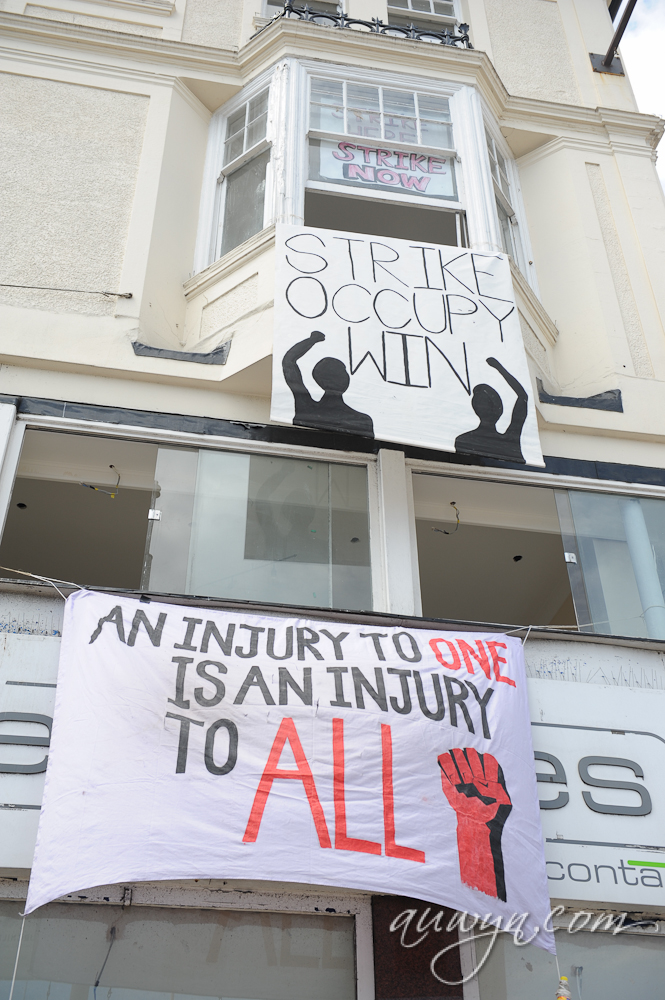 STRIKE
NOW
STRIKE
OCCUPY
WIN
AN INJURY TO ONE
IS AN INJURY
TO ALL
es
conta
auwyn.com